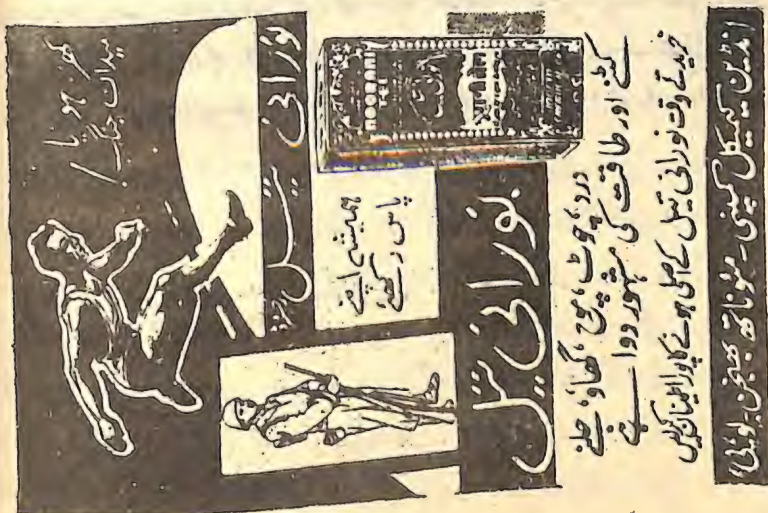 کھر ہو یا
میدان جنگ!
نورانی تیل
ہمیشہ اپنے
پاس رکھئے
NOORANI
TEL
نورانی تیل
नूरानी तेल
نورانی تیل
درد، چوٹ، موچ، گھاؤ، جلنے
کٹنے اور طاقت کی مشہور دوا ہے
خریدتے وقت نورانی تیل کے اصلی ہونے کا پورا اطمینان کر لیں
انڈین کیمیکل کمپنی۔ مئوناتھ بھنجن۔ یو پی